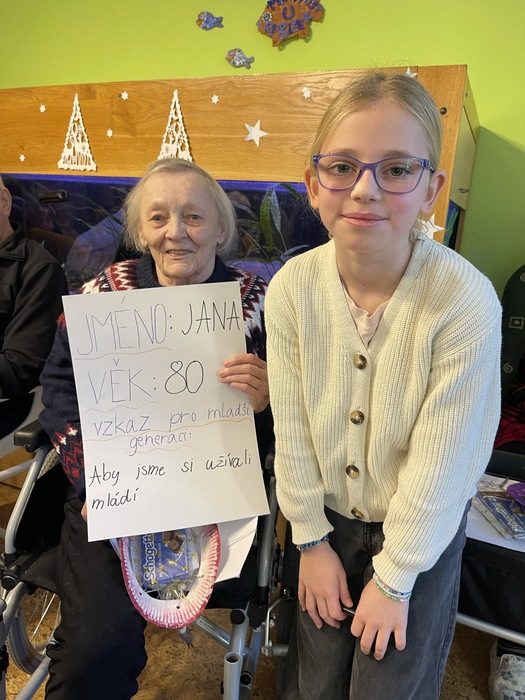 JMÉNO: JANA
VĚK: 80
vzkaz pro mladší
generaci:
Aby jsme si užívali
mládí
Schogett